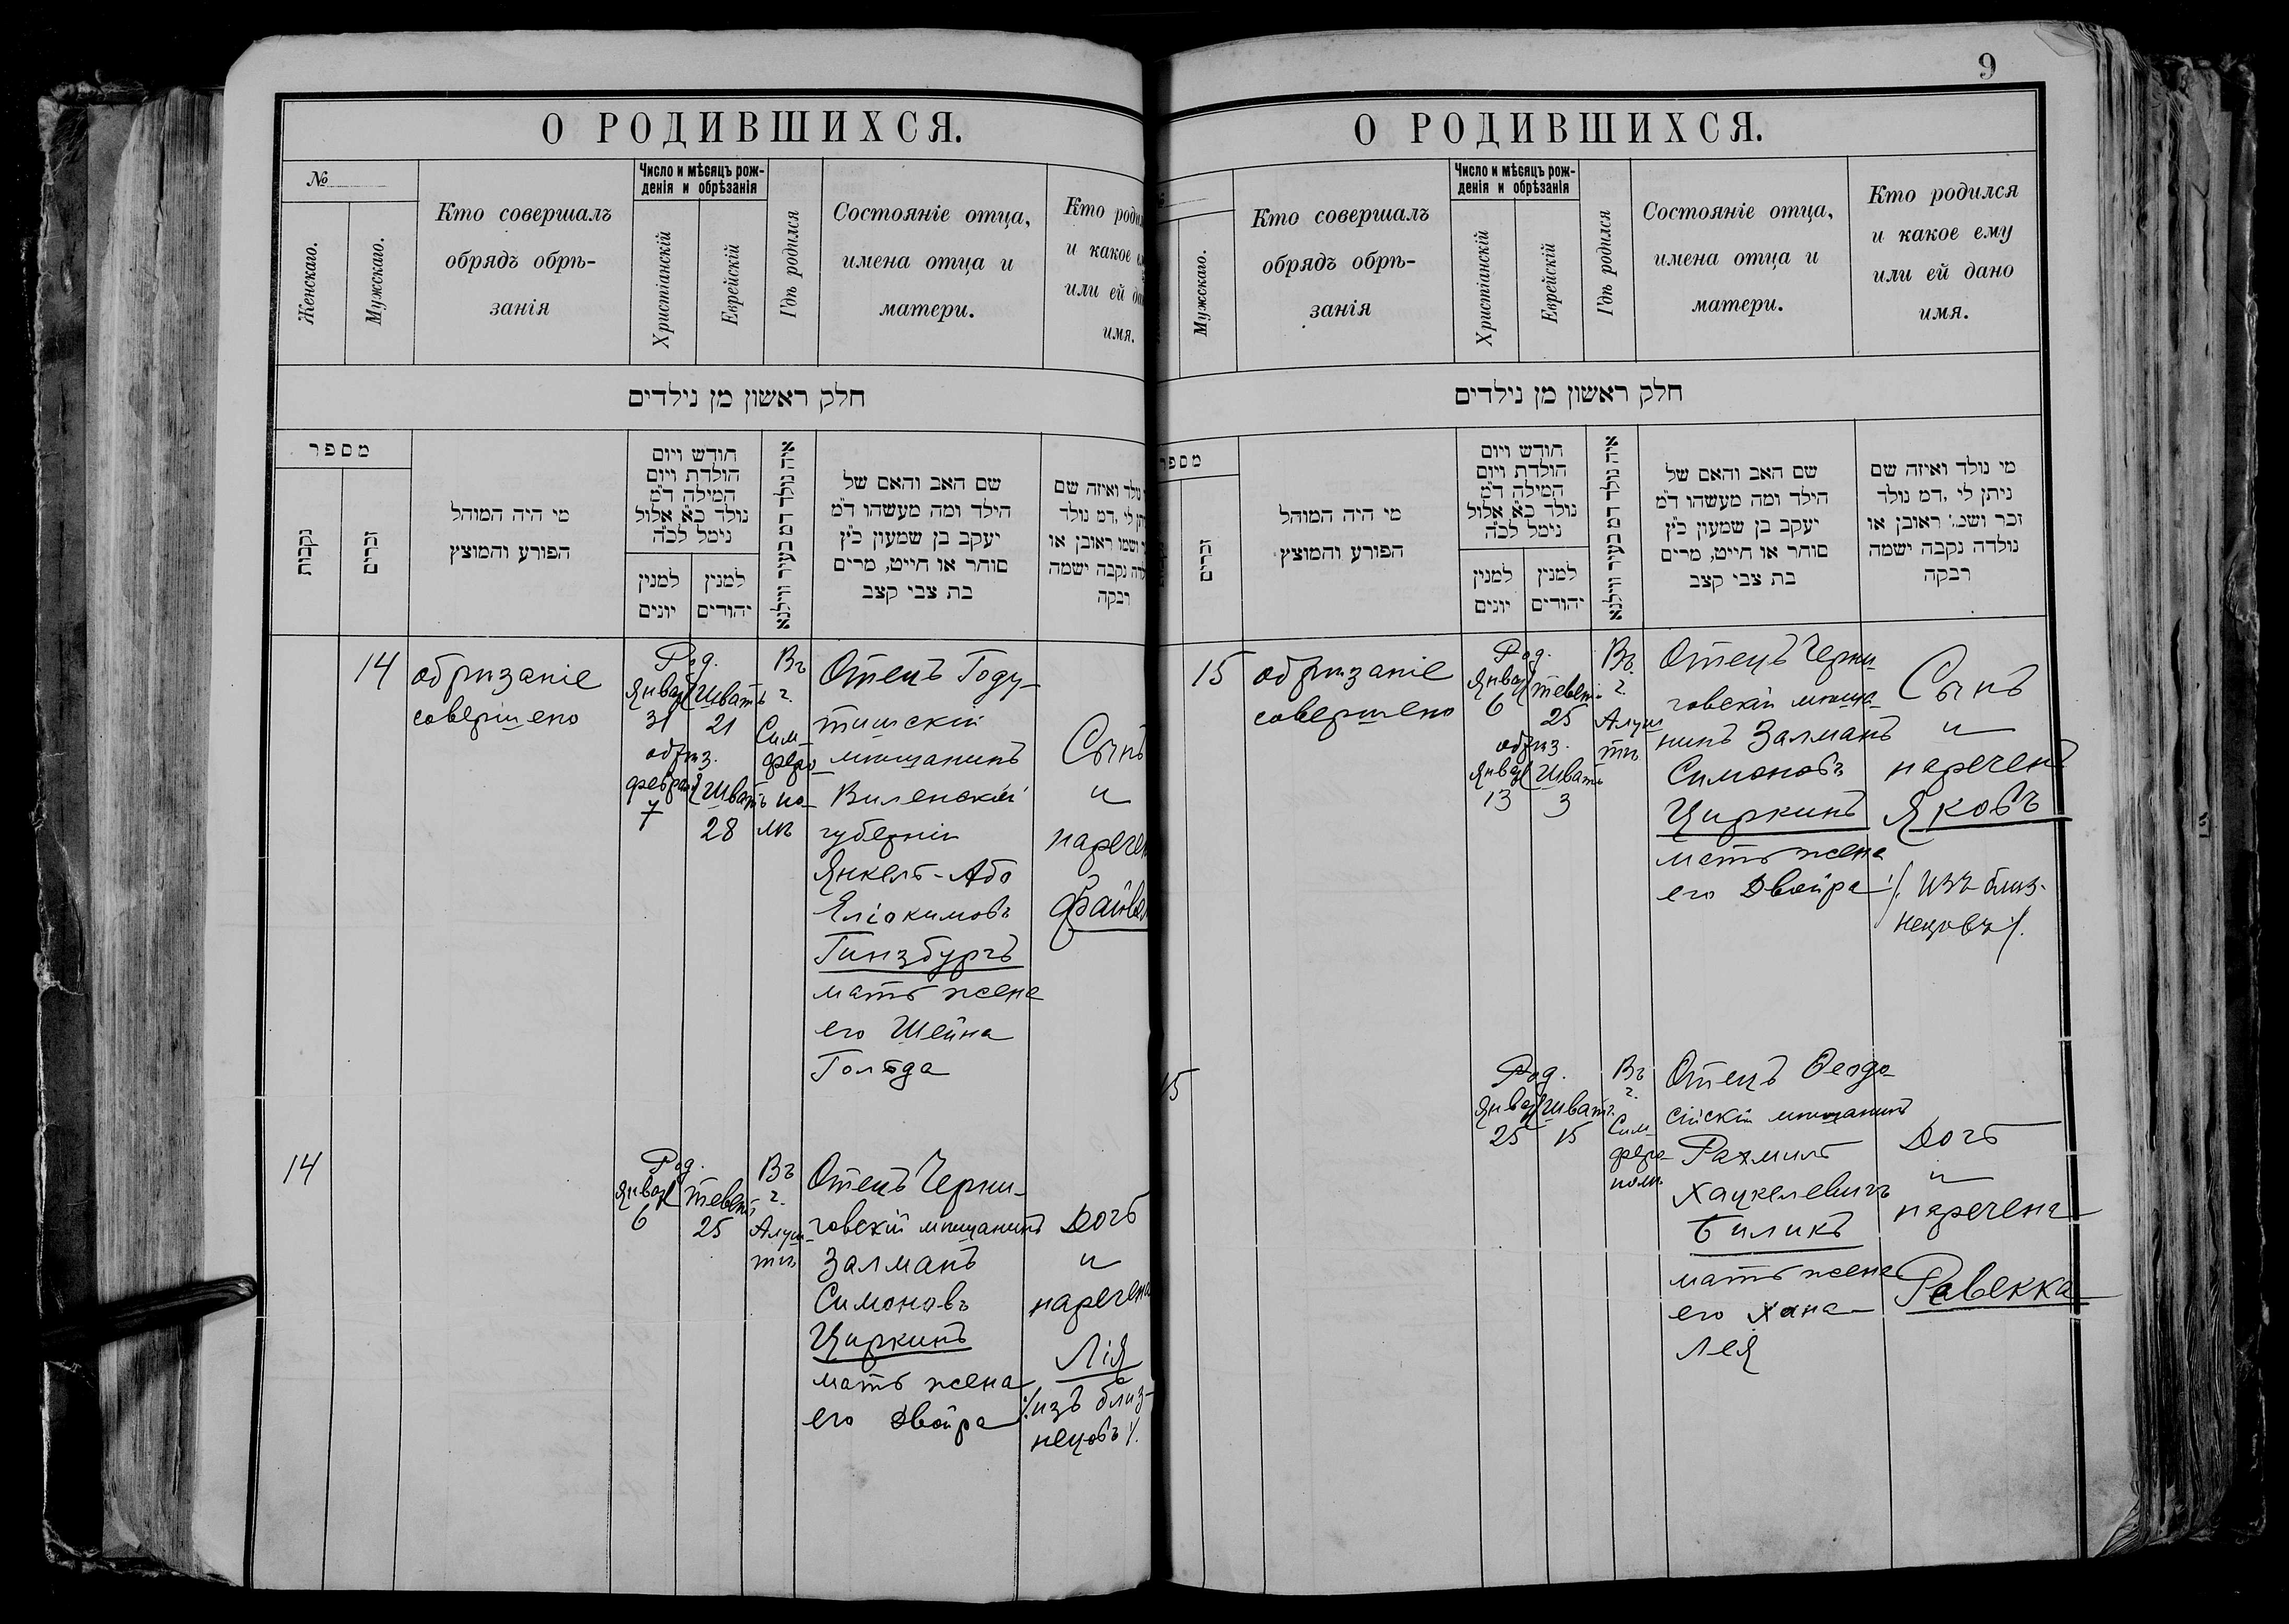 О РОДИВШИХСЯ.
№
Женскаго.
Мужскаго.
Кто совершалъ
обрядъ обрѣ-
занія
Число и мѣсяцъ рож-
денія и обрѣзанія
Христіанскій
Еврейскій
Гдѣ родился
Состояніе отца,
имена отца и
матери.
Кто
и какое
или ей
имя.
חלק ראשון מן נילדים
מספר
נקבות
זכרים
מי היה המוהל
הפורע והמוצץ
חודש ויום
הולדת ויום
המילה ד"מ
נולד כ"א אלול
נימל לכ"ה
למנין
יונים
למנין
יהודים
איה נולד דמ בעיר ווילנא
שם האב והאם של
הילד ומה מעשהו ד"מ
יעקב בן שמעון כ"ץ
סוחר או חייט, מרים
בת צבי קצב
נולד ואיזה שם
לי ,דמ נולד
ושמו ראובן או
נקבה ישמה
רבקה
14
обрѣзаніе
совершено
Род.
Январ
31
Шватъ
21
обрѣз.
февраля
7
Шватъ
28
Въ
г.
Сим-
феро-
по-
лѣ
Отецъ Году-
тишскій
мѣщанинъ
Виленской
губерніи
Янкель-Або
Еліокимовъ
Гинзбургъ
мать жена
его Шейна
Гольда
Сынъ
и
14
Род.
Январ
6
Теветъ
25
Въ
г.
Алуш-
тѣ
Отецъ Черни-
говскій мѣщанинъ
Залманъ
Симоновъ
Циркинъ
мать жена
его Двойра
Дочь
и
наречена
Лія
/. изъ близ-
нецовъ /.
9
О РОДИВШИХСЯ.
Мужскаго.
Кто совершалъ
обрядъ обрѣ-
занія
Число и мѣсяцъ рож-
денія и обрѣзанія
Христіанскій
Еврейскій
Гдѣ родился
Состояніе отца,
имена отца и
матери.
Кто родился
и какое ему
или ей дано
имя.
חלק ראשון מן נילדים
מספר
זכרים
מי היה המוהל
הפורע והמוצץ
חודש ויום
הולדת ויום
המילה ד"מ
נולד כ"א אלול
נימל לכ"ה
למנין
יונים
למנין
יהודים
איה נולד דמ בעיר ווילנא
שם האב והאם של
הילד ומה מעשהו ד"מ
יעקב בן שמעון כ"ץ
סוחר או חייט, מרים
בת צבי קצב
מי נולד ואיזה שם
ניתן לי ,דמ נולד
זכר ושמ: ראובן או
נולדה נקבה ישמה
רבקה
15
обрѣзаніе
совершено
Род.
Январ
6
Теветъ
25
обрѣз.
Январ
13
Шватъ
3
Въ
г.
Алуш
тѣ
Отецъ Черни
говскій мѣща
нинъ Залманъ
Симоновъ
Циркинъ
мать жена
его Двойра
Сынъ
и
нареченъ
Яковъ
/. изъ близ-
нецовъ /.
15
Род.
Январ
25
Шватъ
15
Въ
г.
Сим-
феро-
полѣ
Отецъ Ѳеодо
сійскій мѣщанинъ
Рахмиль
Хацкелевичъ
Биликъ
мать жена
его Хана
Лея
Дочь
и
наречена
Ревекка